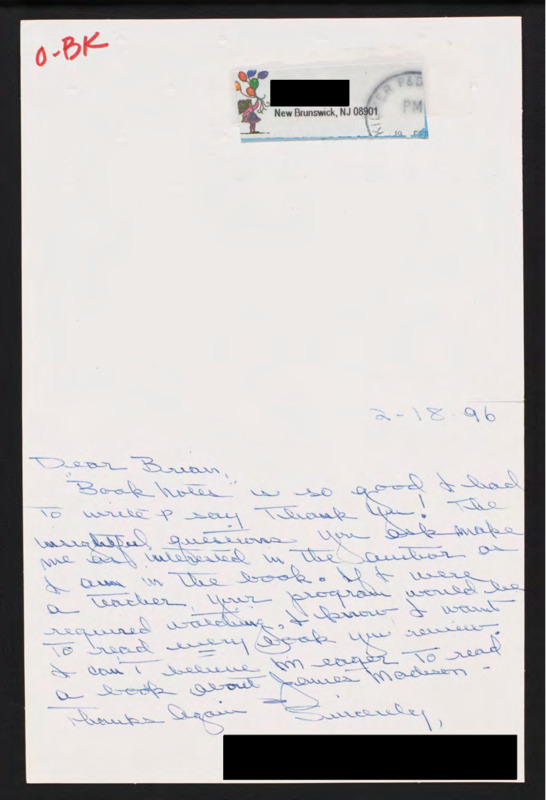 O-BK
New Brunswick, NJ 08901
PM
2-18-96
Dear Brian,
"Book Notes" is so good I had
to write & say Thank You! The
insightful questions you ask make
me as interested in the author as
I am in the book. If I were
a teacher, your program would be
required watching. I know I want
to read every book you review.
I can't believe I'm eager to read
a book about James Madison -
Thanks Again Sincerely,